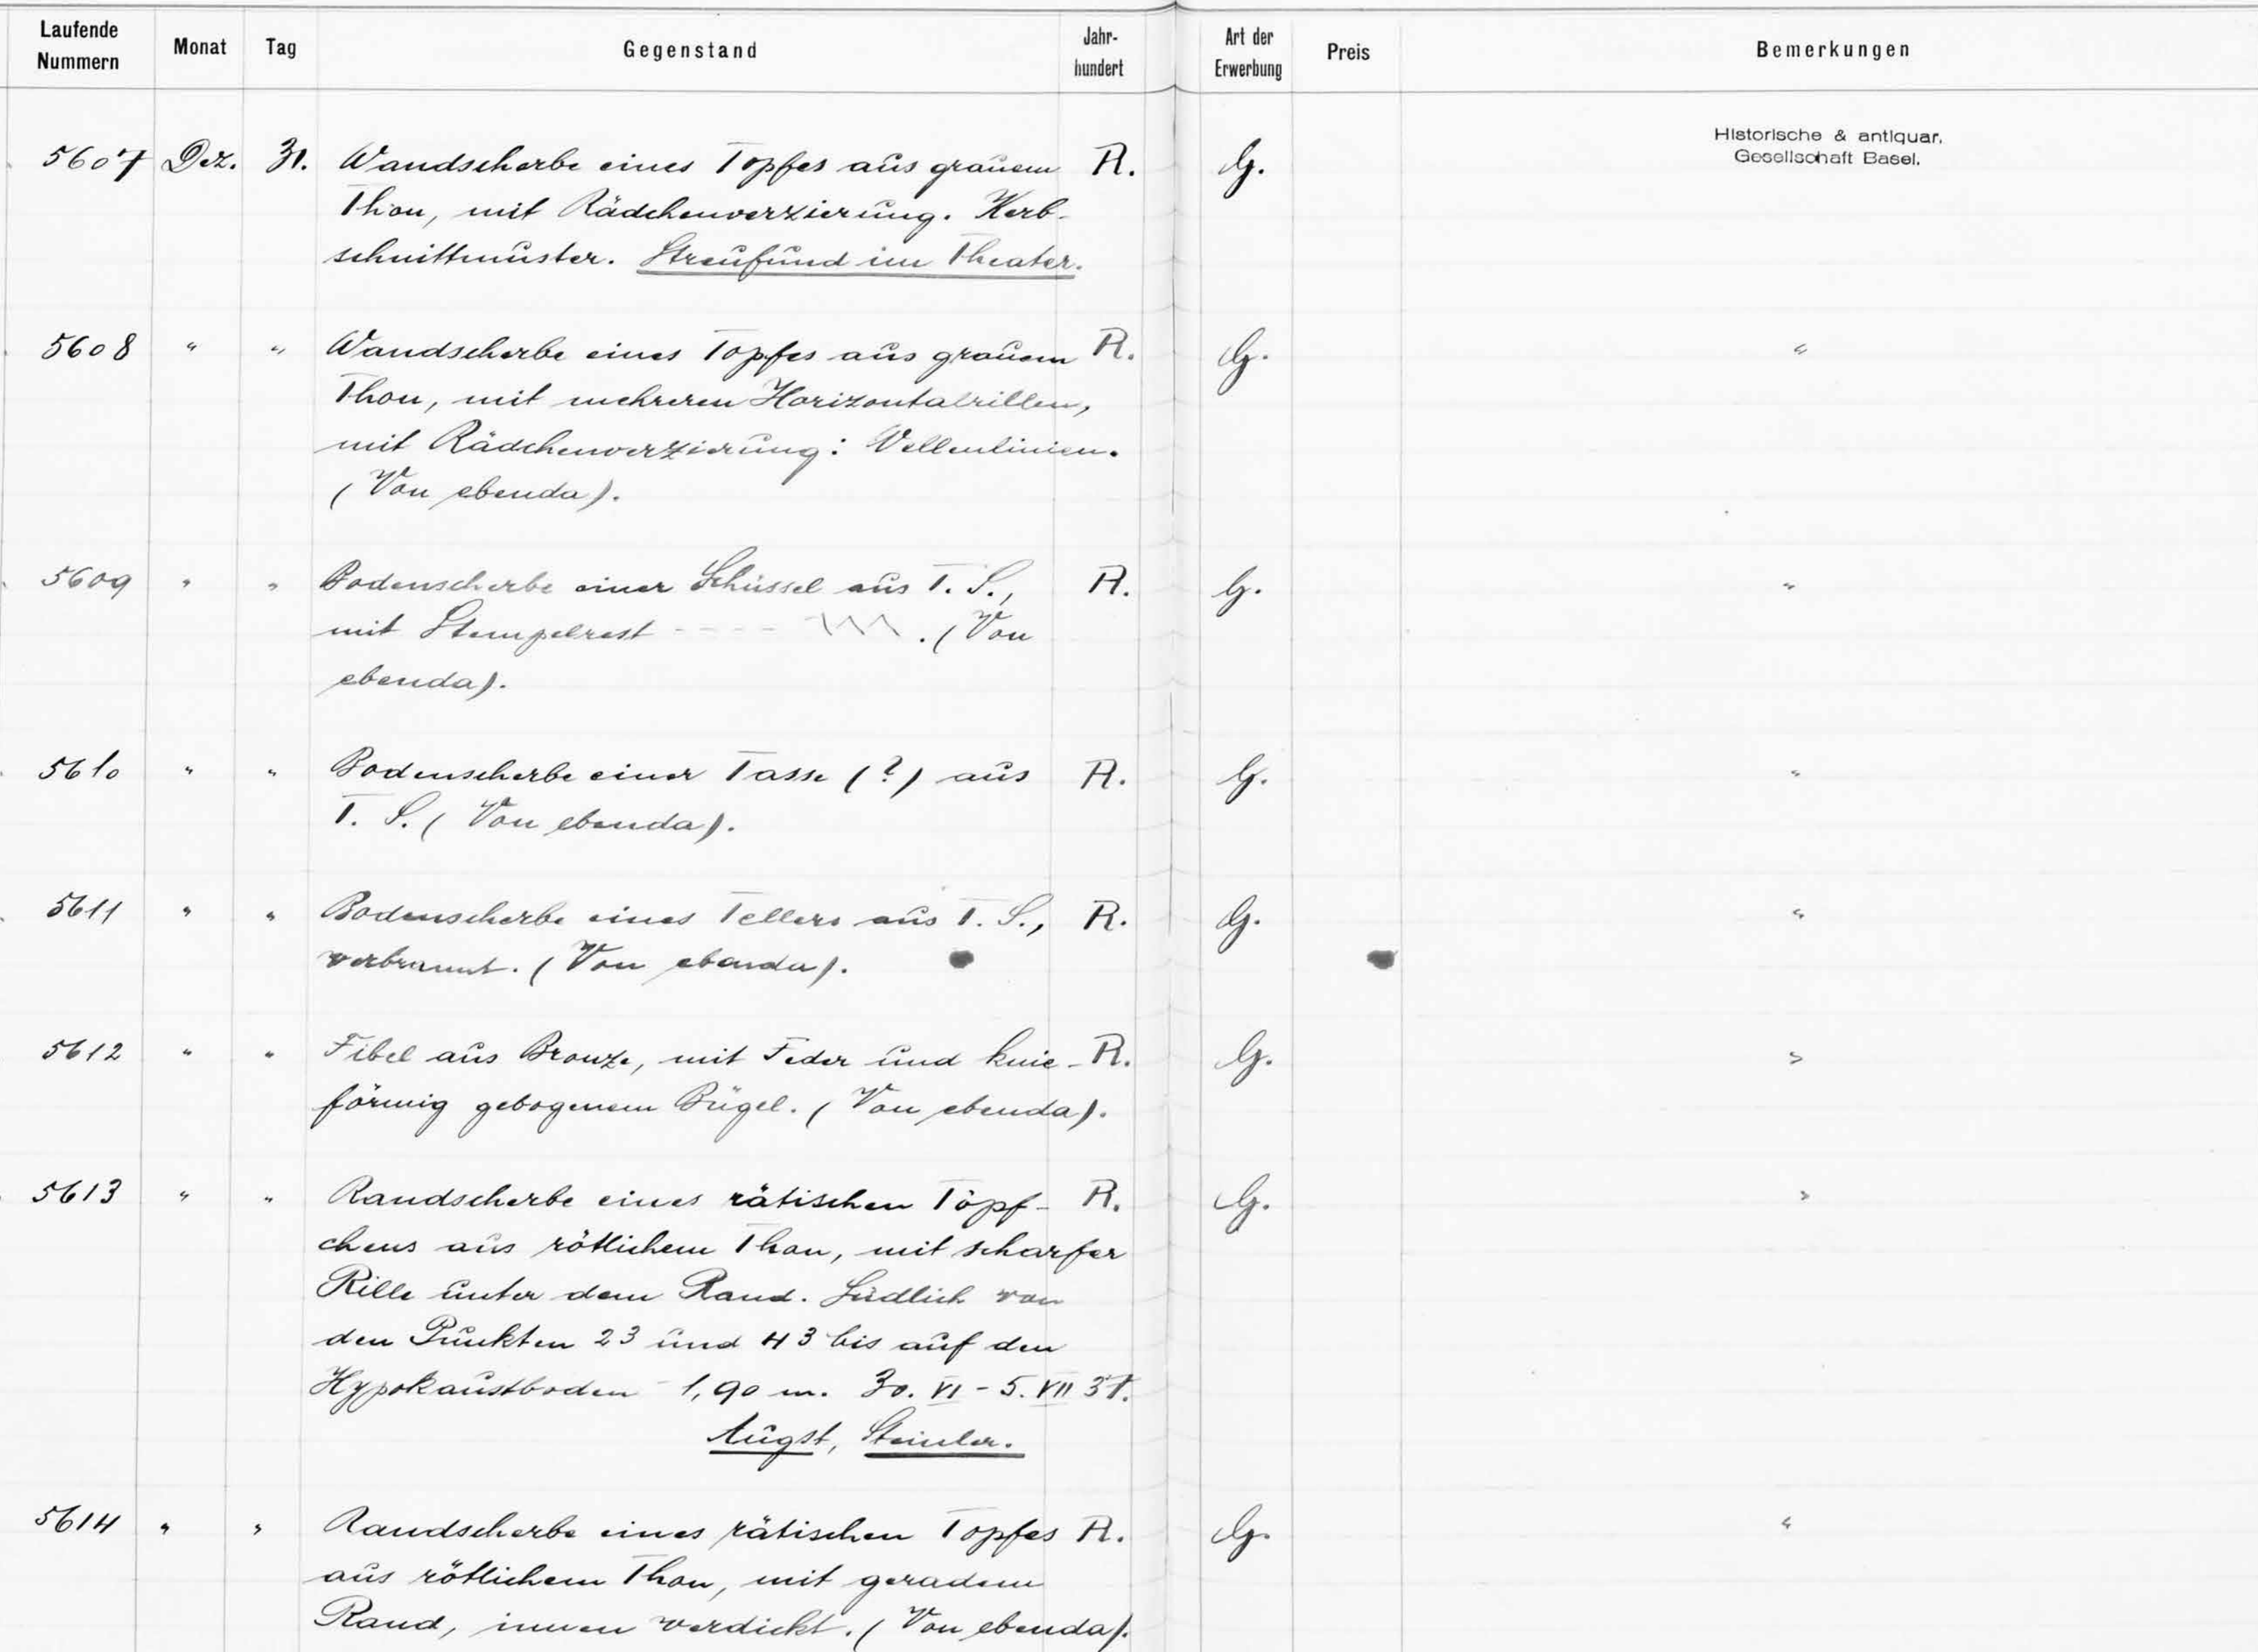 Laufende Nummern Monat Tag Gegenstand Jahr-hundert Art der Erwerbung Preis Bemerkungen
5607 Dez. 31. Wandscherbe eines Topfes aus grauem R. G. Historische & antiquar.
Gesellschaft Basel.
Thon, mit Rädchenverzierung. Kerb-
schnittmuster. Streufund im Theater.
5608 " " Wandscherbe eines Topfes aus grauem R. G. "
Thon, mit mehreren Horizontalrillen,
mit Rädchenverzierung: Wellenlinien.
(Von ebenda).
5609 " " Bodenscherbe einer Schüssel aus T. S., R. G. "
mit Stempelrest - - - - . (Von
ebenda).
5610 " " Bodenscherbe einer Tasse (?) aus R. G. "
T. S. (Von ebenda).
5611 " " Bodenscherbe eines Tellers aus T. S., R. G. "
verbrannt. (Von ebenda).
5612 " " Fibel aus Bronze, mit Feder und knie- R. G. "
förmig gebogenem Bügel. (Von ebenda).
5613 " " Randscherbe eines rätischen Töpf- R. G. "
chens aus rötlichem Thon, mit scharfer
Rille unter dem Rand. Südlich von
den Punkten 23 und 43 bis auf den
Hypokaustboden - 1,90 m. 30. VI - 5. VII 37.
Augst, Steinler.
5614 " " Randscherbe eines rätischen Topfes R. G. "
aus rötlichem Thon, mit geradem
Rand, innen verdickt. (Von ebenda).